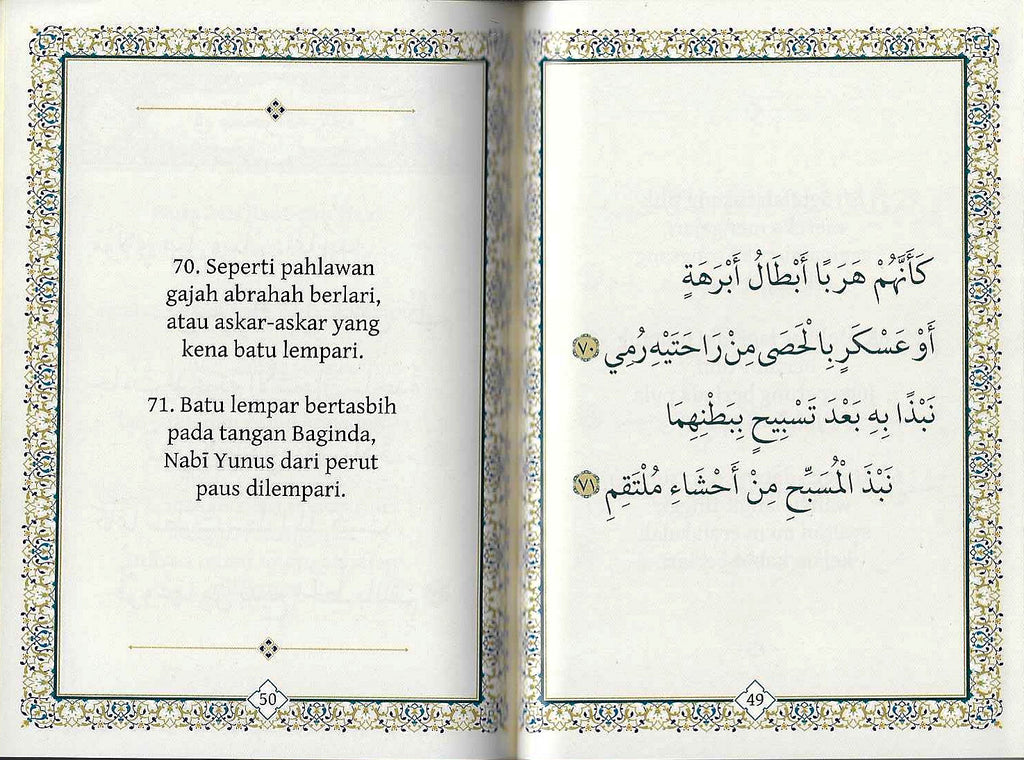 كَأَنَّهُمْ هَرَبًا أَبْطَالُ أَبْرَهَةٍ
أَوْ عَسْكَرٍ بِالْحَصَى مِنْ رَاحَتَيْهِ رُمِي ٧٠
نَبْذًا بِهِ بَعْدَ تَسْبِيحٍ بِبَطْنِهِمَا
نَبْذَ الْمُسَبِّحِ مِنْ أَحْشَاءِ مُلْتَقِمِ ٧١
49
70. Seperti pahlawan
gajah abrahah berlari,
atau askar-askar yang
kena batu lempari.
71. Batu lempar bertasbih
pada tangan Baginda,
Nabī Yunus dari perut
paus dilempari.
50